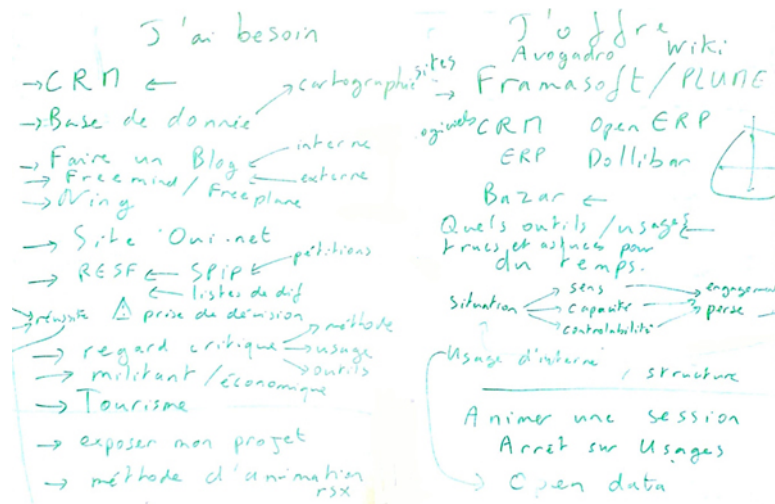 J'ai besoin
→ CRM ←
→ Base de donnée → cartographie
→ Faire un Blog ← interne
← externe
→ Freemind / Freeplane
→ Ning
→ Site Oui.net
→ RESF ← SPIP ← pétitions
← listes de dif
→ réussite ⚠ prise de décision
→ regard critique → méthode
→ usage
→ outils
→ militant / économique
→ Tourisme
→ exposer mon projet
→ méthode d'animation
rsx
J'offre
Avogadro Wiki
sites
→ Framasoft / PLUME
ogiciels CRM Open ERP
ERP Dollibar
Bazar ←
Quels outils / usages ←
trucs et astuces pour
du temps.
Situation → sens → engagement
→ capacité → perse
→ controlabilité
Usage d'interne
, structure
Animer une session
Arrêt sur Usages
→ Open data